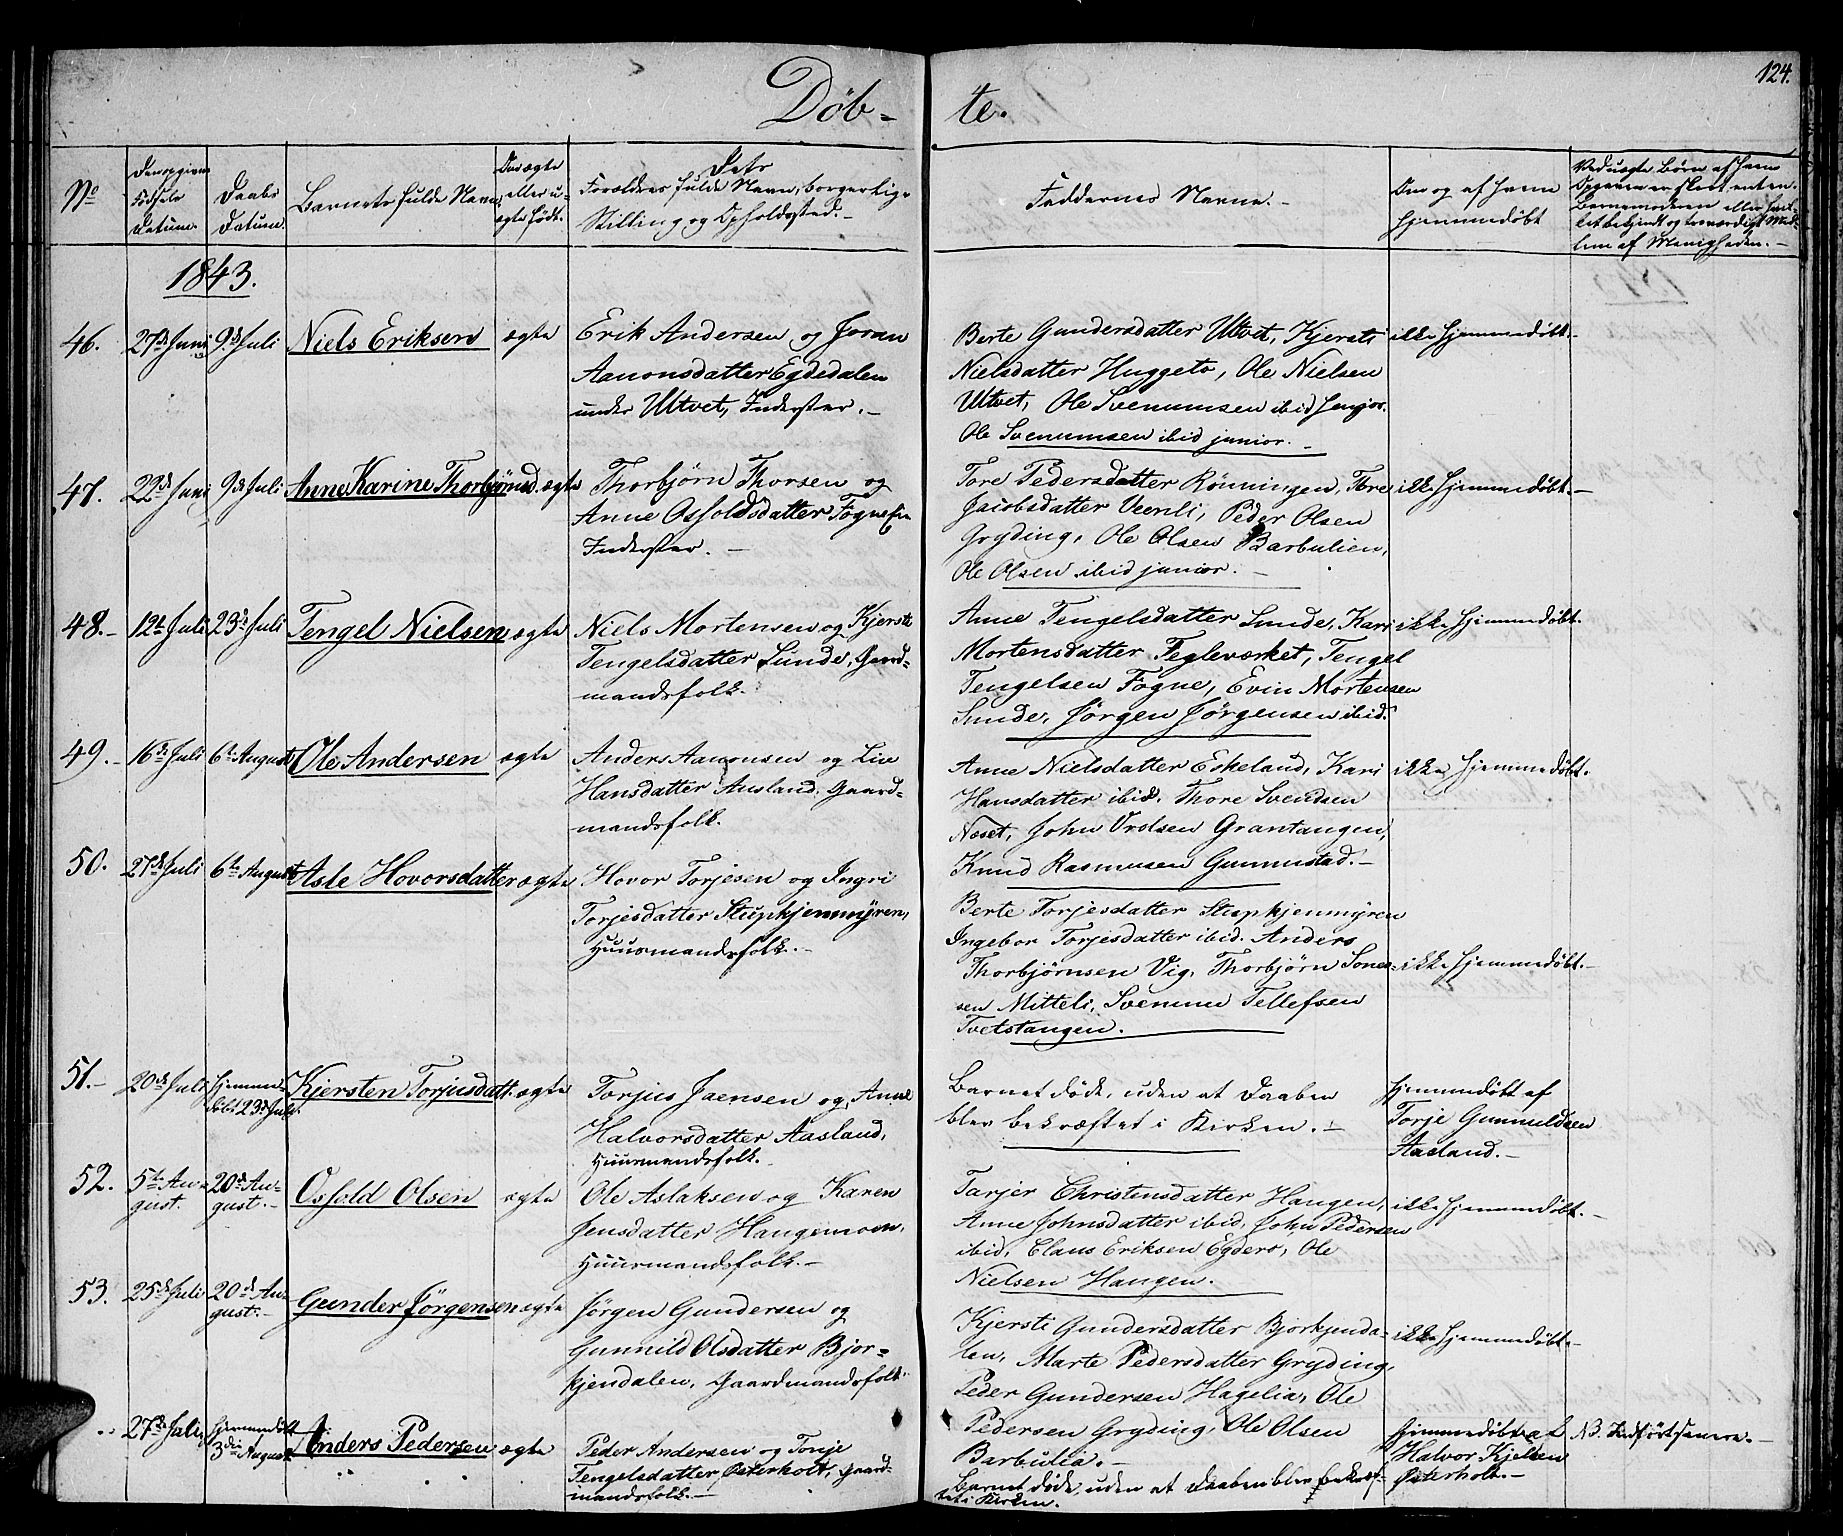 124.
Döb-
te.
No
Den opgivne
Födsels
Datum.
Daabs
Datum
Barnets fulde Navn,
Om ægte
eller u-
ægte født.
Dets
Forældres fulde Navn, borgerlige
Stilling og Opholdssted.-
Faddernes Navne.-
Om og af hvem
hjemmedøbt
Ved uægte Børn af hvem
Opgaven er skeet, enten
Barnemoderen eller
bekjendt og troværdigt Med-
lem af Menigheden.-
1843.
46.
27de Juni
9de Juli
Niels Eriksen
ægte
Erik Andersen og Joran
Aanonsdatter Egdedalen
under Utvet, Inderster.-
Berte Gundersdatter Utvet, Kjersti
Nielsdatter Huggeto, Ole Nielsen
Utvet, Ole Svenumsen ibid senjor.
Ole Svenumsen ibid junior.-
ikke hjemmedøbt.-
47.
22de Juni
9de Juli
Anne Karine Thorbjörnsd.
ægte
Thorbjørn Thorsen og
Anne Osfoldsdatter Fogne
Inderster.-
Tore Pedersdatter Rönningen, Tore
Jacobsdatter Veenli, Peder Olsen
Gryding, Ole Olsen Barbulien,
Ole Olsen ibid junior.-
ikke hjemmedøbt.-
48.-
12te Juli
23de Juli
Tengel Nielsen
ægte
Niels Mortensen og Kjersti
Tengelsdatter Sunde, Gaard-
mandsfolk.
Anne Tengelsdatter Sunde, Kari
Mortensdatter Tegleværket, Tengel
Tengelsen Fogne, Evin Mortensen
Sunde, Jørgen Jørgensen ibid.
ikke hjemmedøbt.
49.-
16de Juli
6te August
Ole Andersen
ægte
Anders Aanonsen og Liv
Hansdatter Ausland, Gaard-
mandsfolk.
Anne Nielsdatter Eskeland, Kari
Hansdatter ibid. Thore Svendsen
Næset, John Orolsen Grantangen,
Knud Rasmusen Gunnustad.-
ikke hjemmedøbt.
50.
27de Juli
6te August
Asle Hovorsdatter
ægte
Hovor Torjesen og Ingri
Torjesdatter Stupkjenmyren,
Huusmandsfolk.-
Berte Torjesdatter Stupkjenmyren
Ingebor Torjesdatter ibid. Anders
Thorbjørnsen Vig, Thorbjørn Sones-
sen Mitteli, Svenum Tellefsen
Tvetstangen.
ikke hjemmedøbt.-
51.-
20de Juli
hjemme-
døbt 23de Juli
Kjersten Torjusdatt.
ægte
Torjus Jaensen og Anne
Halvorsdatter Aasland,
Huusmandsfolk.-
Barnet døde, uden at Daaben
blev bekræftet i Kirken.-
hjemmedøbt af
Torje Gunnuldsen
Aasland.-
52.
5te Au-
gust.
20de Au-
gust.-
Osfold Olsen
ægte
Ole Aslaksen og Karen
Jensdatter Haugemoen,
Huusmandsfolk.-
Tarjer Christensdatter Haugen,
Anne Johnsdatter ibid, John Pedersen
ibid, Claus Eriksen Egders, Ole
Nielsen Haugen.
ikke hjemmedøbt.-
53.
25de Juli
20de Au-
gust.-
Gunder Jörgensen
ægte
Jørgen Gundersen og
Gunnild Olsdatter Bjor-
kjendalen, Gaardmandsfolk.
Kjersti Gundersdatter Bjorkjenda-
len, Marte Pedersdatter Gryding,
Peder Gundersen Hagelia, Ole
Pedersen Gryding, Ole Olsen
Barbulia.-
ikke hjemmedøbt.-
27de Juli
hjemmedøbt
3die August
Anders Pedersen
ægte
Peder Andersen og Tonje
Tengelsdatter Østerholt, Gaard-
mandsfolk.-
Barnet døde, uden at Daaben blev bekræf-
tet i Kirken.
hjemmedøbt af
Halvor Kjelsen
Østerholt.-
NB. Indført senere.-